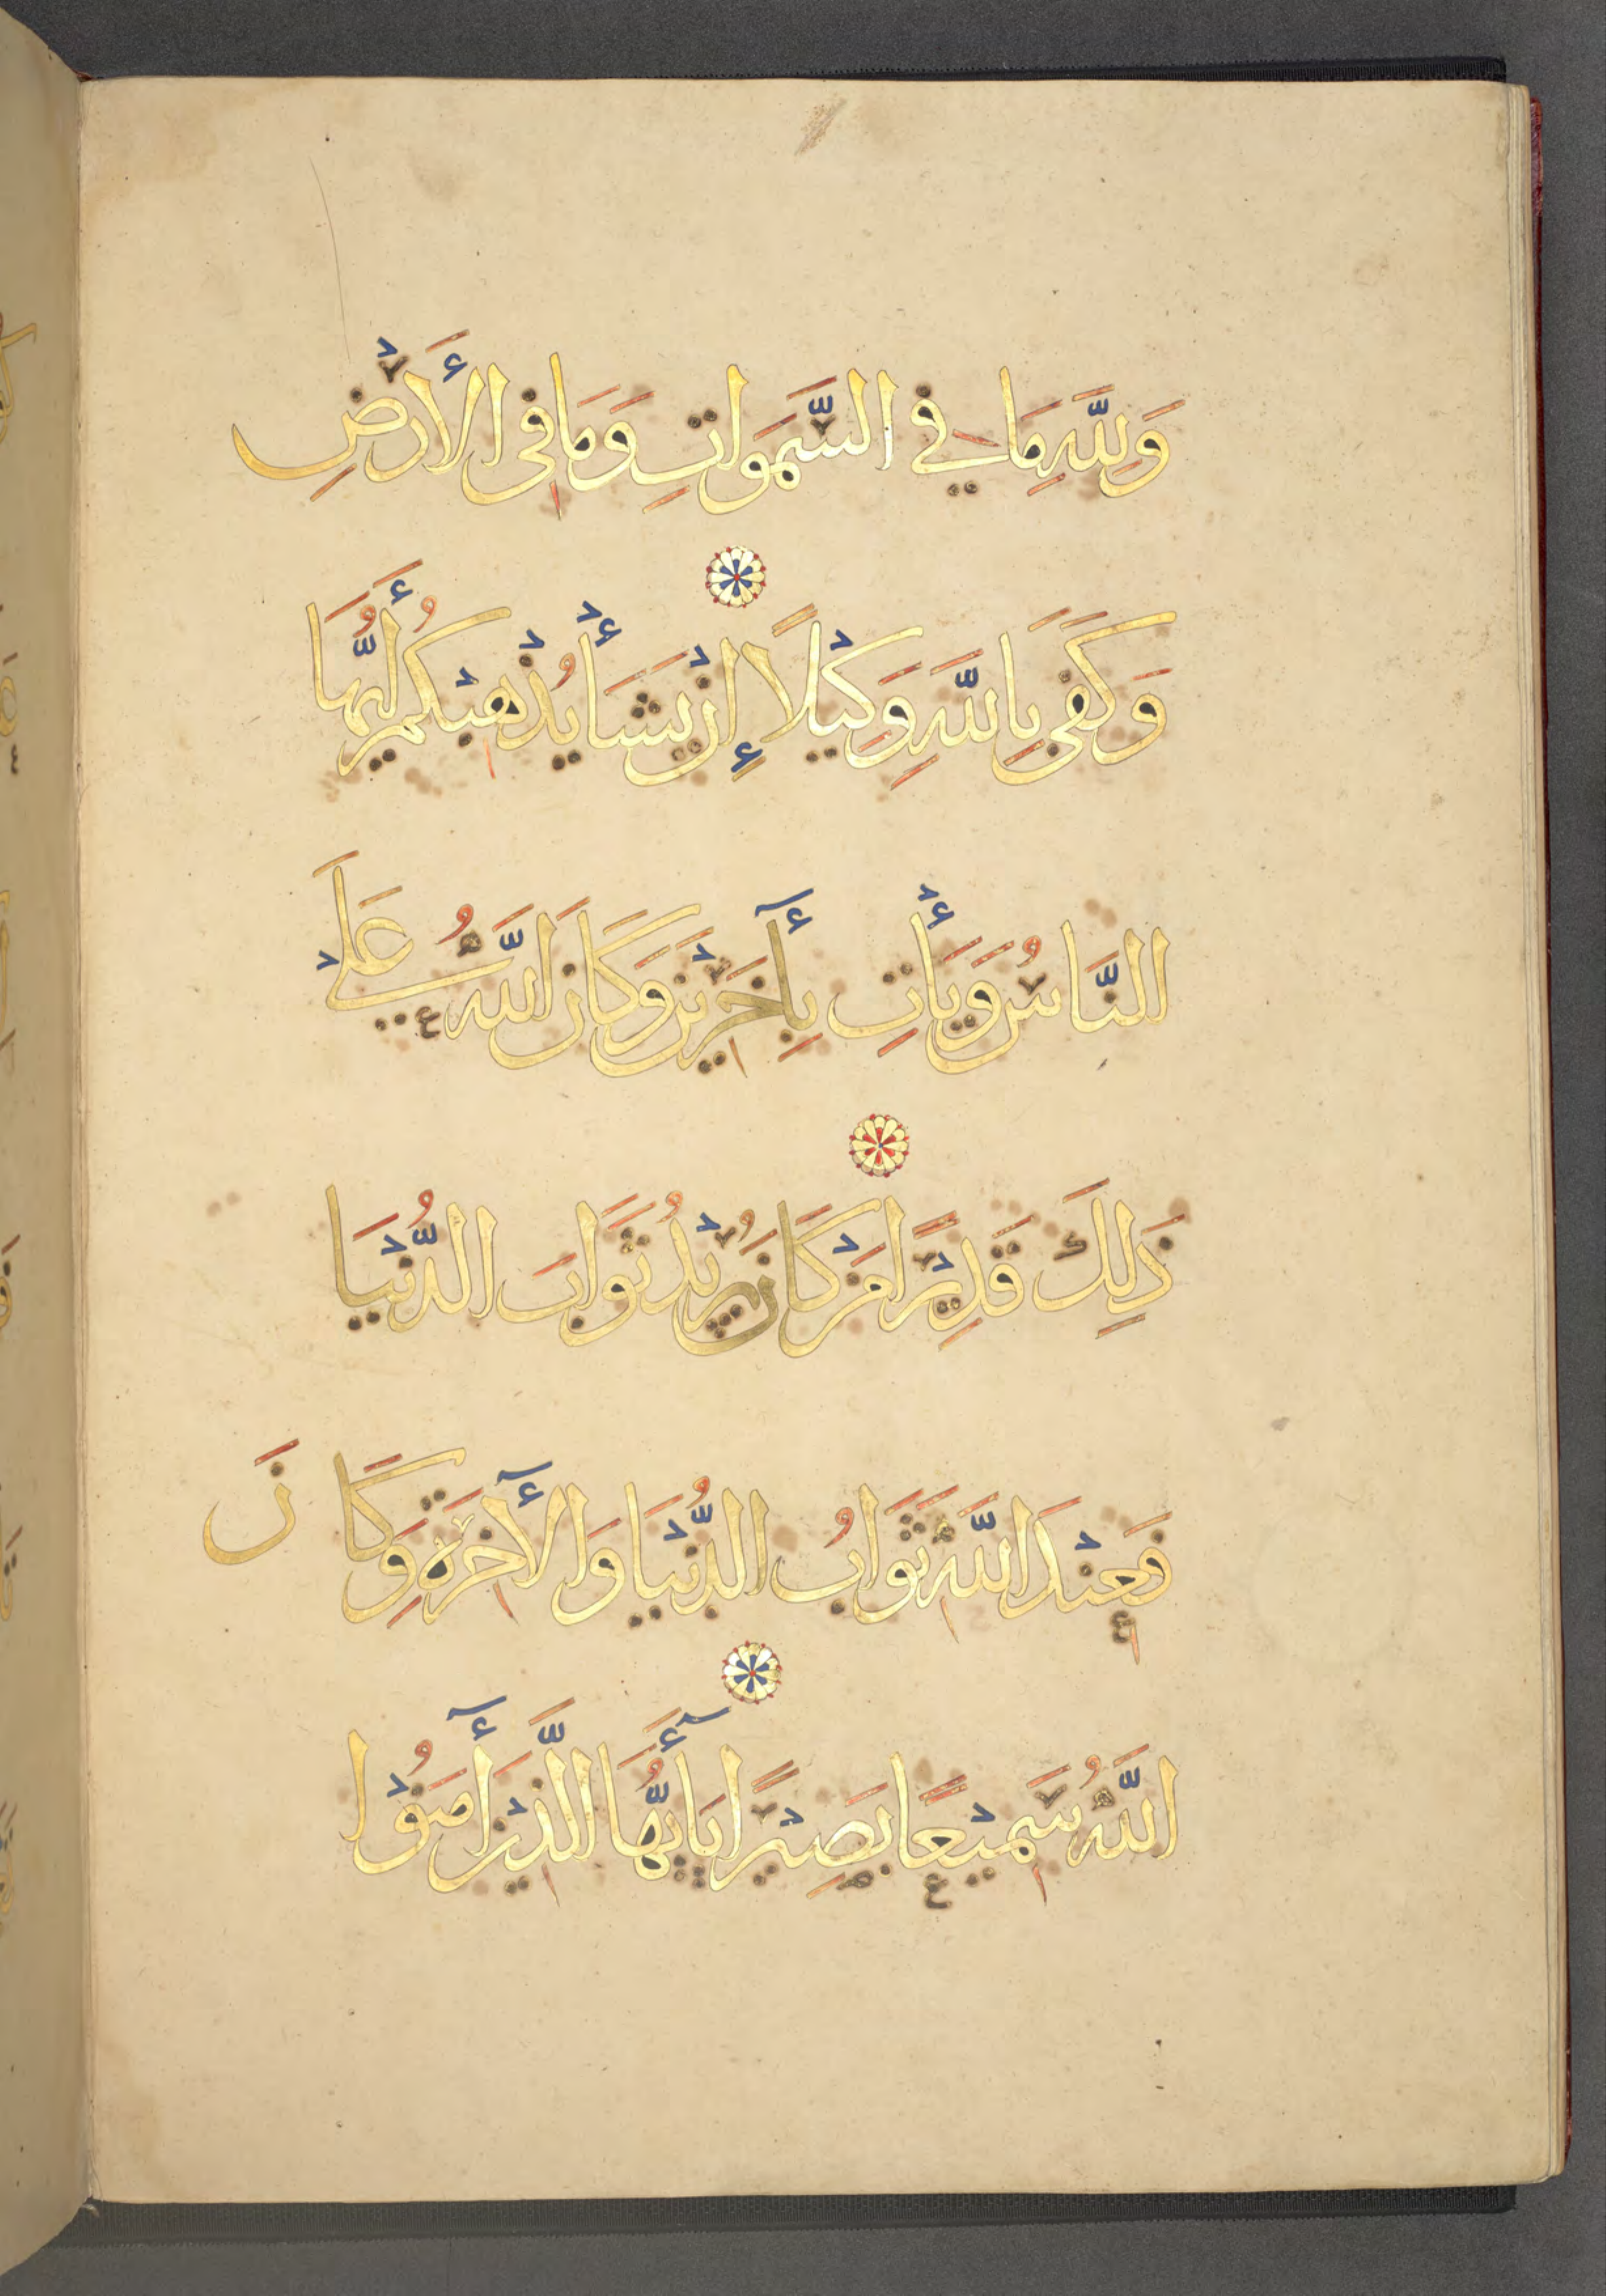 وَلِلَّهِ مَا فِي السَّمَوَاتِ وَمَا فِى الْأَرْضِ
وَكَفَى بِاللَّهِ وَكِيْلًا إِنْ يَشَأْ يُذْهِبْكُمْ أَيُّهَا
النَّاسُ وَيَأْتِ بِأَخَرِيْنَ وَكَانَ اللَّهُ عَلَى
ذَلِكَ قَدِيْرًا مَنْ كَانَ يُرِيْدُ ثَوَابَ الدُّنْيَا
فَعِنْدَ اللَّهِ ثَوَابُ الدُّنْيَا وَالْأَخِرَةِ وَكَانَ
اللَّهُ سَمِيْعًا بَصِيْرًا يَا أَيُّهَا الَّذِيْنَ أَمَنُوْا